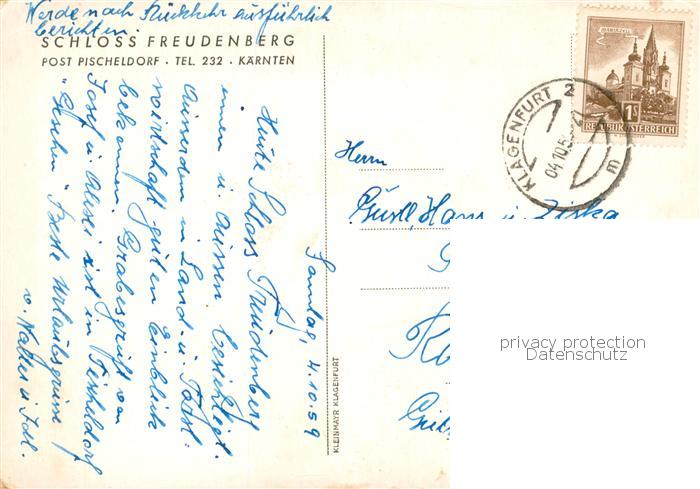 Werde nach Rückkehr ausführlich
berichten.
SCHLOSS FREUDENBERG
POST PISCHELDORF · TEL. 232 · KÄRNTEN
Sonntag, 4.10.59
Heute Schloss Freudenberg
innen u. aussen besichtigt.
Ausserdem in Land- u. Forst-
wirtschaft guten Einblick
bekommen. Grabesgruft von
Josef u. ist in Pischeldorf
Beste Urlaubsgrüsse
v. Walter u.
KLEINMAYR KLAGENFURT
Herrn
Gustl, Hans u. Ziska
KLAGENFURT 2
04.10.5
m
MARIAZELL
1S
REPUBLIK ÖSTERREICH
privacy protection
Datenschutz